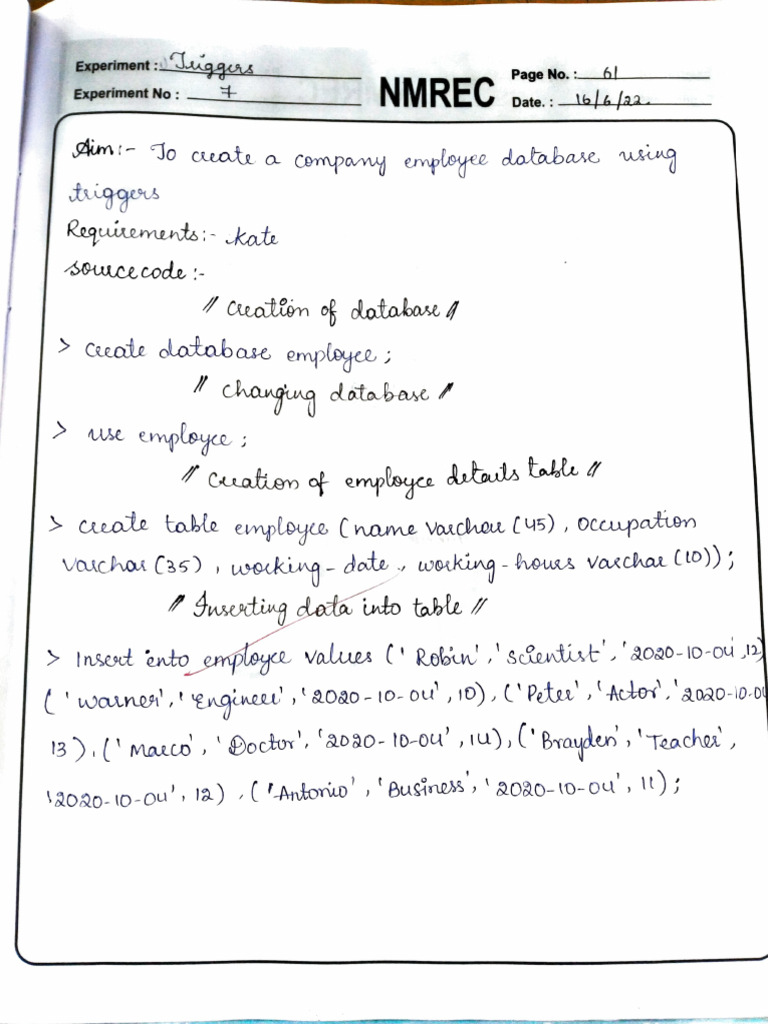 Experiment : Triggers
Experiment No : 7
NMREC
Page No. : 61
Date. : 16/6/22.
Aim:- To create a company employee database using
triggers
Requirements:- kate
sourcecode :-
// Creation of database //
> create database employee ;
// Changing database //
> use employee ;
// Creation of employee details table //
> create table employee (name varchar (45), occupation
varchar (35) , working-date , working-hours varchar (10)) ;
// Inserting data into table //
> Insert into employee values ('Robin', 'scientist', '2020-10-04', 12)
('warner', 'Engineer', '2020-10-04', 10), ('Peter', 'Actor', '2020-10-04
13), ('Marco', 'Doctor', '2020-10-04', 14), ('Brayden', 'Teacher',
'2020-10-04', 12) , ('Antonio', 'Business', '2020-10-04', 11) ;